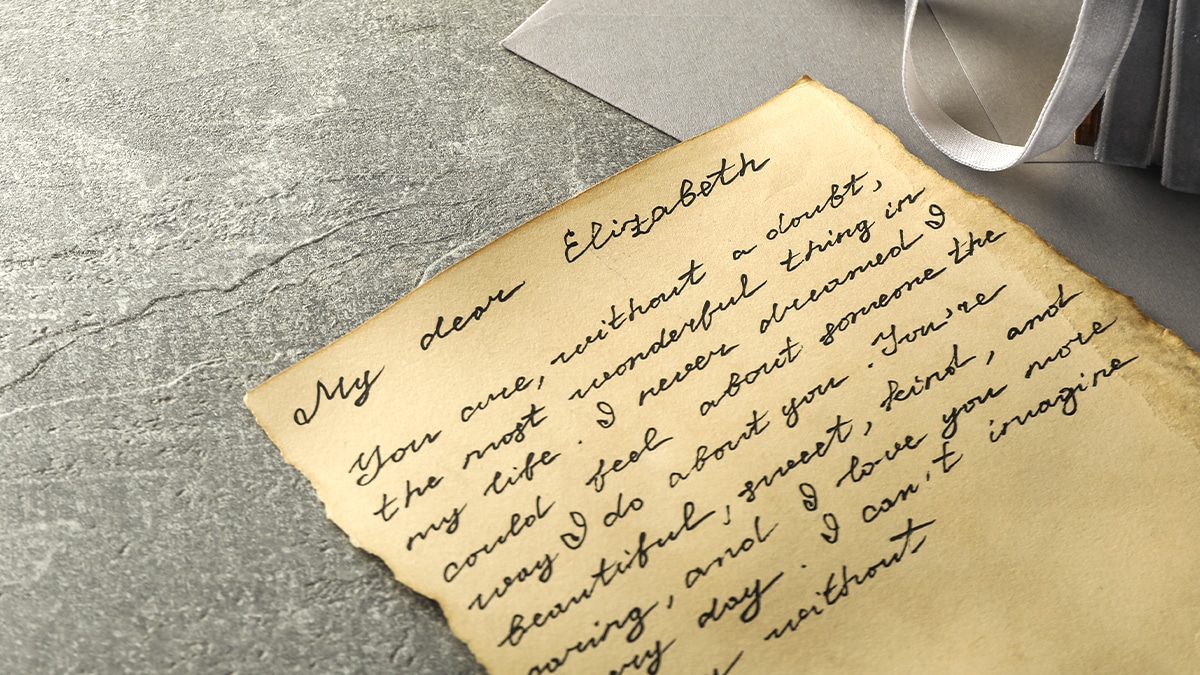 My dear Elizabeth
You are, without a doubt,
the most wonderful thing in
my life. I never dreamed I
could feel about someone the
way I do about you. You're
beautiful, sweet, kind, and
caring, and I love you more
day. I can't imagine
without